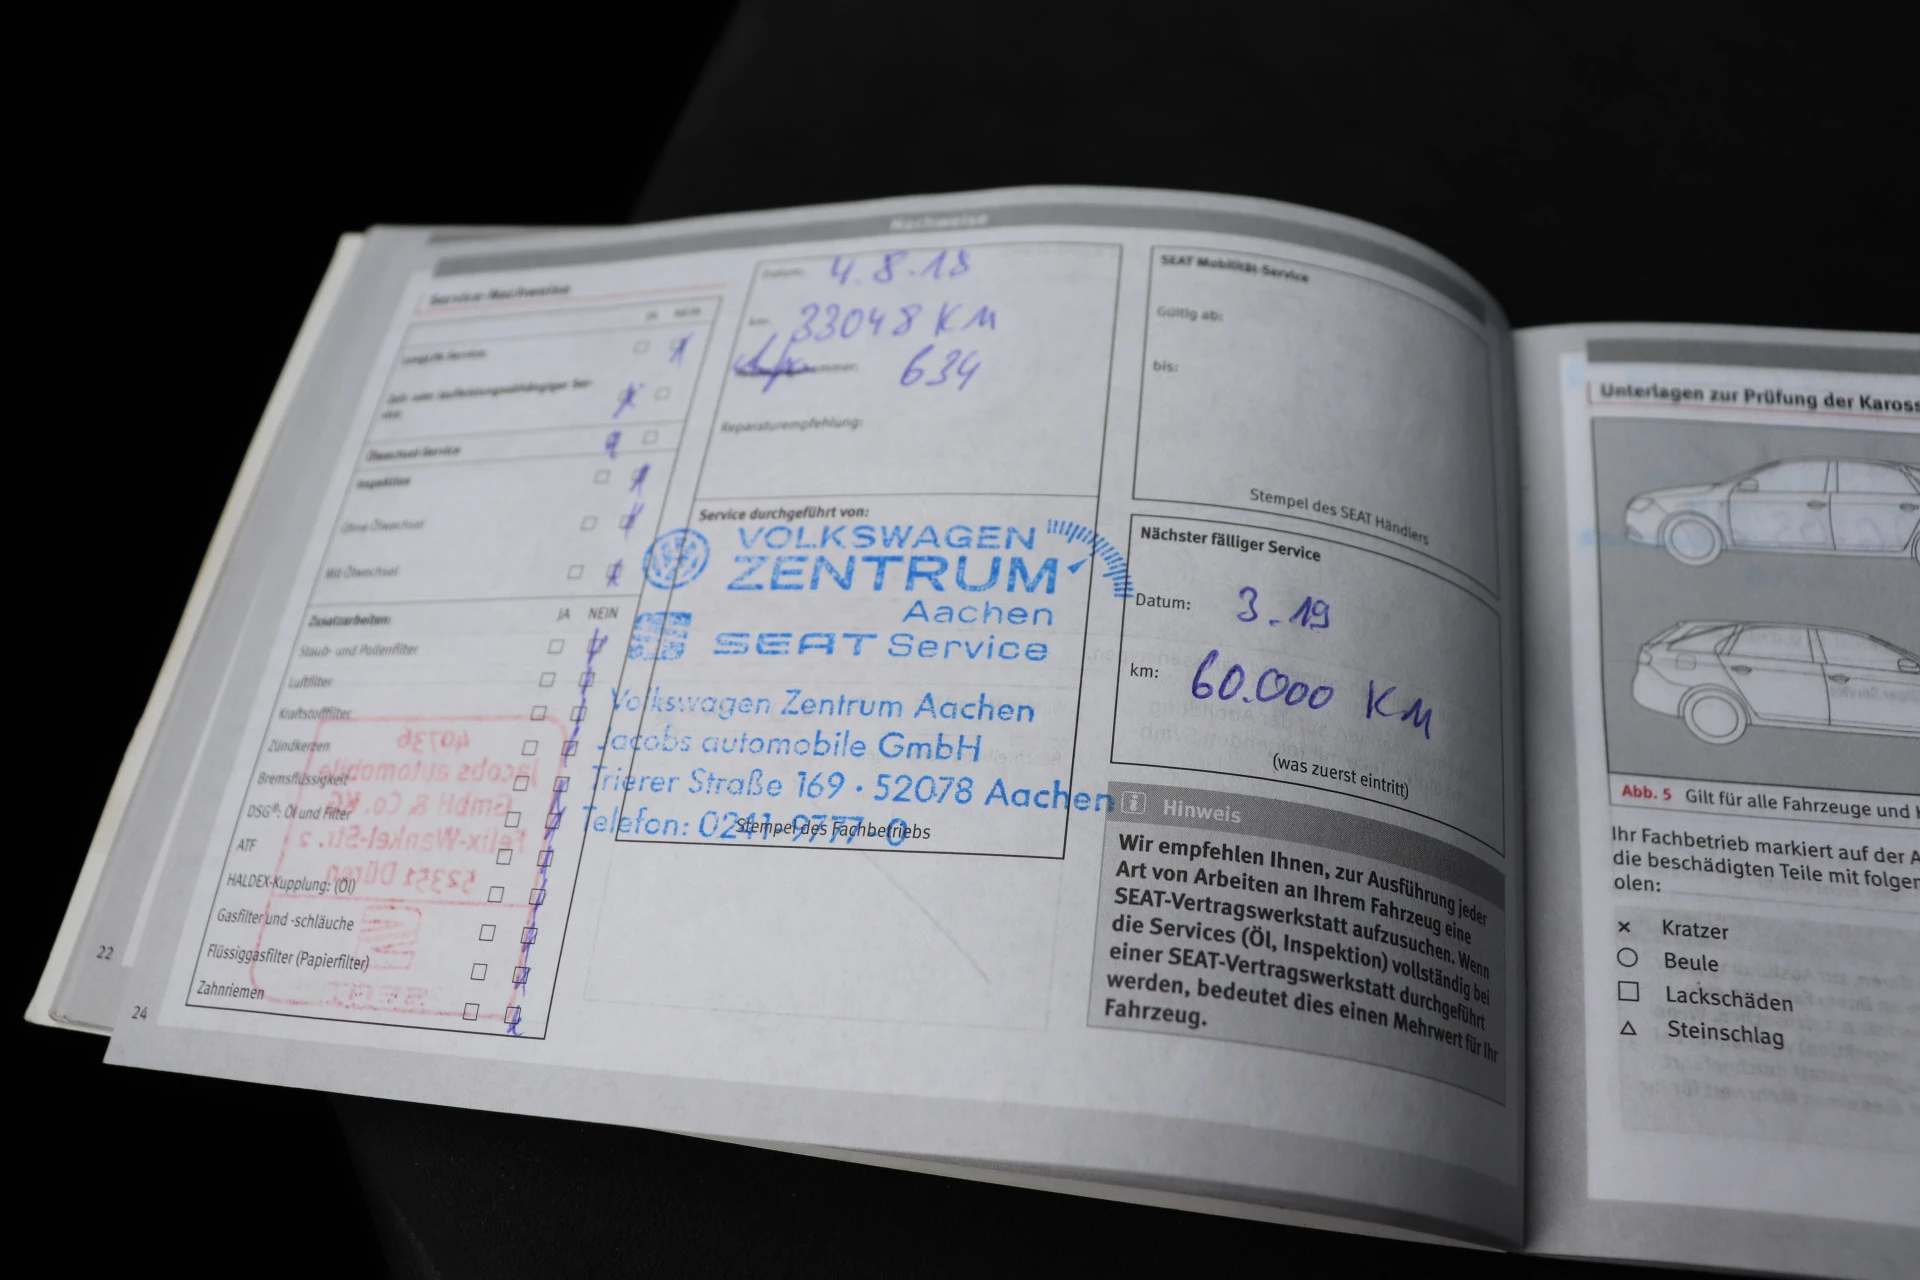 Nachweise
Service-Nachweise
JA NEIN
LongLife-Service
Zeit- oder laufleistungsabhängiger Ser-
vice
Ölwechsel-Service
Inspektion
Ohne Ölwechsel
Mit Ölwechsel
Zusatzarbeiten: JA NEIN
Staub- und Pollenfilter
Luftfilter
Kraftstofffilter
Zündkerzen
Bremsflüssigkeit
DSG®: Öl und Filter
ATF
HALDEX-Kupplung: (Öl)
Gasfilter und -schläuche
Flüssiggasfilter (Papierfilter)
Zahnriemen
40736
Jacobs automobile
GmbH & Co. KG
Felix-Wankel-Str. 2
52351 Düren
SEAT
22
24
Datum: 4.8.18
km: 33048 KM
634
Reparaturempfehlung:
Service durchgeführt von:
VOLKSWAGEN
ZENTRUM
Aachen
SEAT Service
Volkswagen Zentrum Aachen
Jacobs automobile GmbH
Trierer Straße 169 · 52078 Aachen
Telefon: 0241-9777-0
Stempel des Fachbetriebs
SEAT Mobilität-Service
Gültig ab:
bis:
Stempel des SEAT Händlers
Nächster fälliger Service
Datum: 3.19
km: 60.000 KM
(was zuerst eintritt)
i Hinweis
Wir empfehlen Ihnen, zur Ausführung jeder
Art von Arbeiten an Ihrem Fahrzeug eine
SEAT-Vertragswerkstatt aufzusuchen. Wenn
die Services (Öl, Inspektion) vollständig bei
einer SEAT-Vertragswerkstatt durchgeführt
werden, bedeutet dies einen Mehrwert für Ihr
Fahrzeug.
Unterlagen zur Prüfung der Kaross
Abb. 5 Gilt für alle Fahrzeuge und
Ihr Fachbetrieb markiert auf der A
die beschädigten Teile mit folgen
olen:
Kratzer
Beule
Lackschäden
Steinschlag